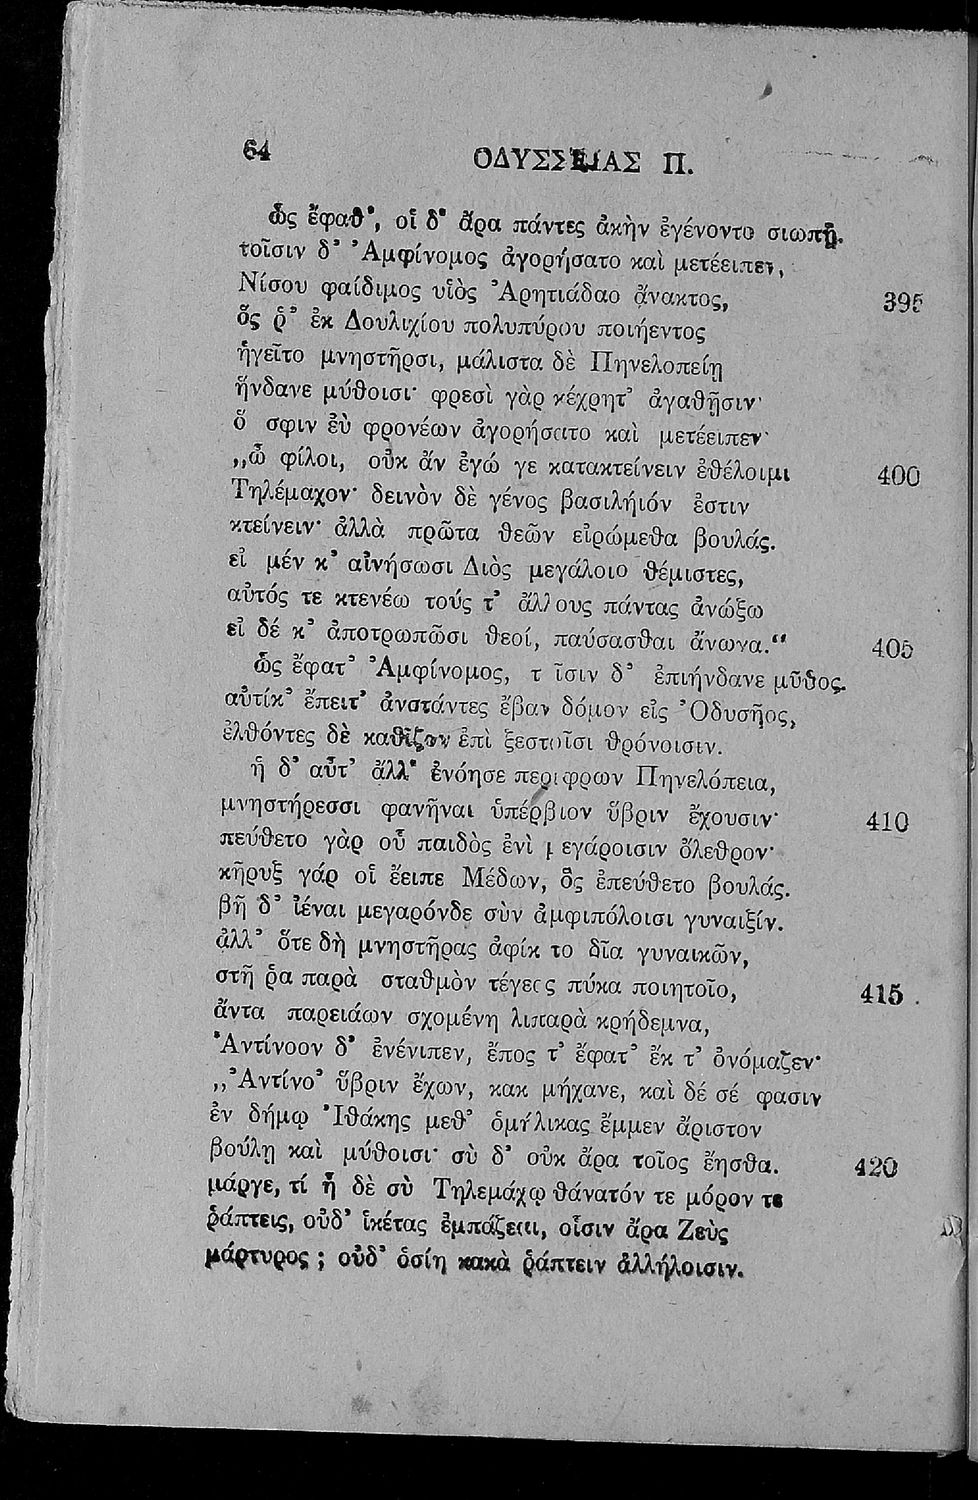 64
ΟΔΥΣΣΕΙΑΣ Π.
ὣς ἔφαθ', οἱ δ' ἄρα πάντες ἀκὴν ἐγένοντο σιωπῇ.
τοῖσιν δ' Ἀμφίνομος ἀγορήσατο καὶ μετέειπεν,
Νίσου φαίδιμος υἱὸς Ἀρητιάδαο ἄνακτος, 395
ὅς ῥ' ἐκ Δουλιχίου πολυπύρου ποιήεντος
ἡγεῖτο μνηστῆρσι, μάλιστα δὲ Πηνελοπείῃ
ἥνδανε μύθοισι· φρεσὶ γὰρ κέχρητ' ἀγαθῇσιν·
ὅ σφιν ἐὺ φρονέων ἀγορήσατο καὶ μετέειπεν·
„ὦ φίλοι, οὐκ ἂν ἐγώ γε κατακτείνειν ἐθέλοιμι 400
Τηλέμαχον· δεινὸν δὲ γένος βασιλήιόν ἐστιν
κτείνειν· ἀλλὰ πρῶτα θεῶν εἰρώμεθα βουλάς.
εἰ μέν κ' αἰνήσωσι Διὸς μεγάλοιο θέμιστες,
αὐτός τε κτενέω τούς τ' ἄλλους πάντας ἀνώξω
εἰ δέ κ' ἀποτρωπῶσι θεοί, παύσασθαι ἄνωγα.“ 405
ὣς ἔφατ' Ἀμφίνομος, τ ῖσιν δ' ἐπιήνδανε μῦθος.
αὐτίκ' ἔπειτ' ἀνστάντες ἔβαν δόμον εἰς Ὀδυσῆος,
ἐλθόντες δὲ καθῖζον ἐπὶ ξεστοῖσι θρόνοισιν.
ἡ δ' αὖτ' ἄλλ' ἐνόησε περιφρων Πηνελόπεια,
μνηστήρεσσι φανῆναι ὑπέρβιον ὕβριν ἔχουσιν· 410
πεύθετο γὰρ οὗ παιδὸς ἐνὶ μεγάροισιν ὄλεθρον·
κῆρυξ γάρ οἱ ἔειπε Μέδων, ὃς ἐπεύθετο βουλάς.
βῆ δ' ἰέναι μεγαρόνδε σὺν ἀμφιπόλοισι γυναιξίν.
ἀλλ' ὅτε δὴ μνηστῆρας ἀφίκ το δῖα γυναικῶν,
στῆ ῥα παρὰ σταθμὸν τέγεος πύκα ποιητοῖο, 415
ἄντα παρειάων σχομένη λιπαρὰ κρήδεμνα,
Ἀντίνοον δ' ἐνένιπεν, ἔπος τ' ἔφατ' ἔκ τ' ὀνόμαζεν·
„Ἀντίνο' ὕβριν ἔχων, κακ μήχανε, καὶ δέ σέ φασιν
ἐν δήμῳ Ἰθάκης μεθ' ὁμήλικας ἔμμεν ἄριστον
βούλῃ καὶ μύθοισι· σὺ δ' οὐκ ἄρα τοῖος ἔησθα. 420
μάργε, τί ἢ δὲ σὺ Τηλεμάχῳ θάνατόν τε μόρον τε
ῥάπτεις, οὐδ' ἱκέτας ἐμπάζεαι, οἷσιν ἄρα Ζεὺς
μάρτυρος ; οὐδ' ὁσίη κακὰ ῥάπτειν ἀλλήλοισιν.